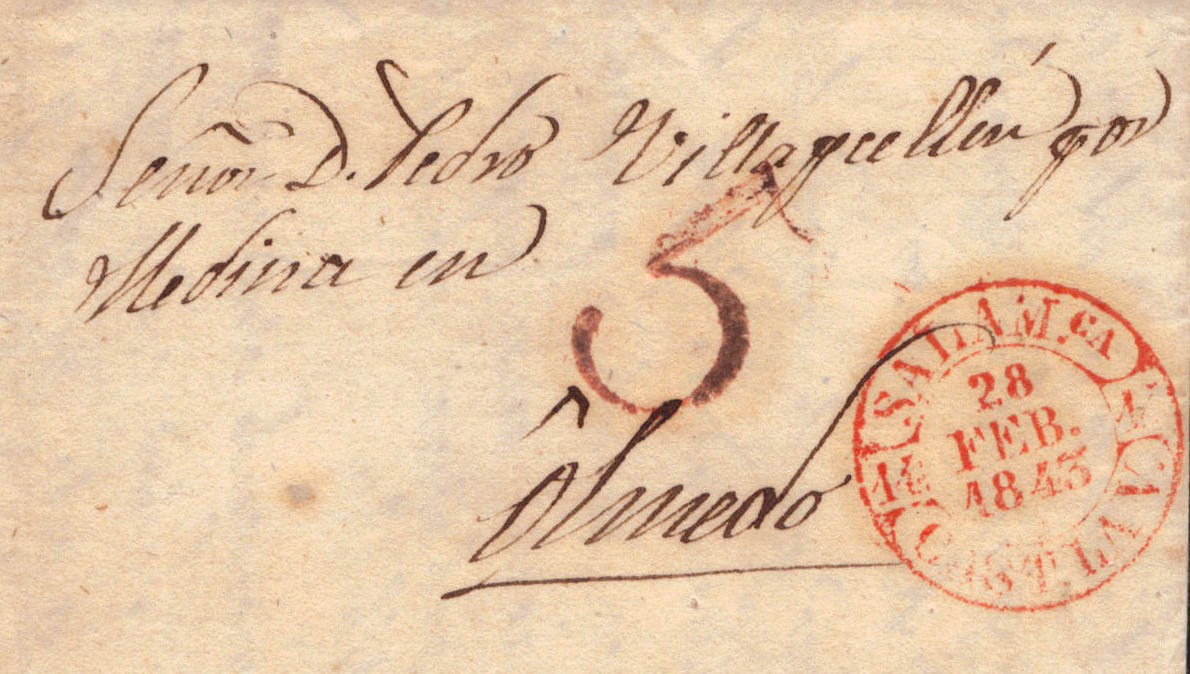 Señor D. Pedro Villaguillen por
Medina en
5
Olmedo
SALAM.CA
14
28
FEB.
1843
CAST.LA V.